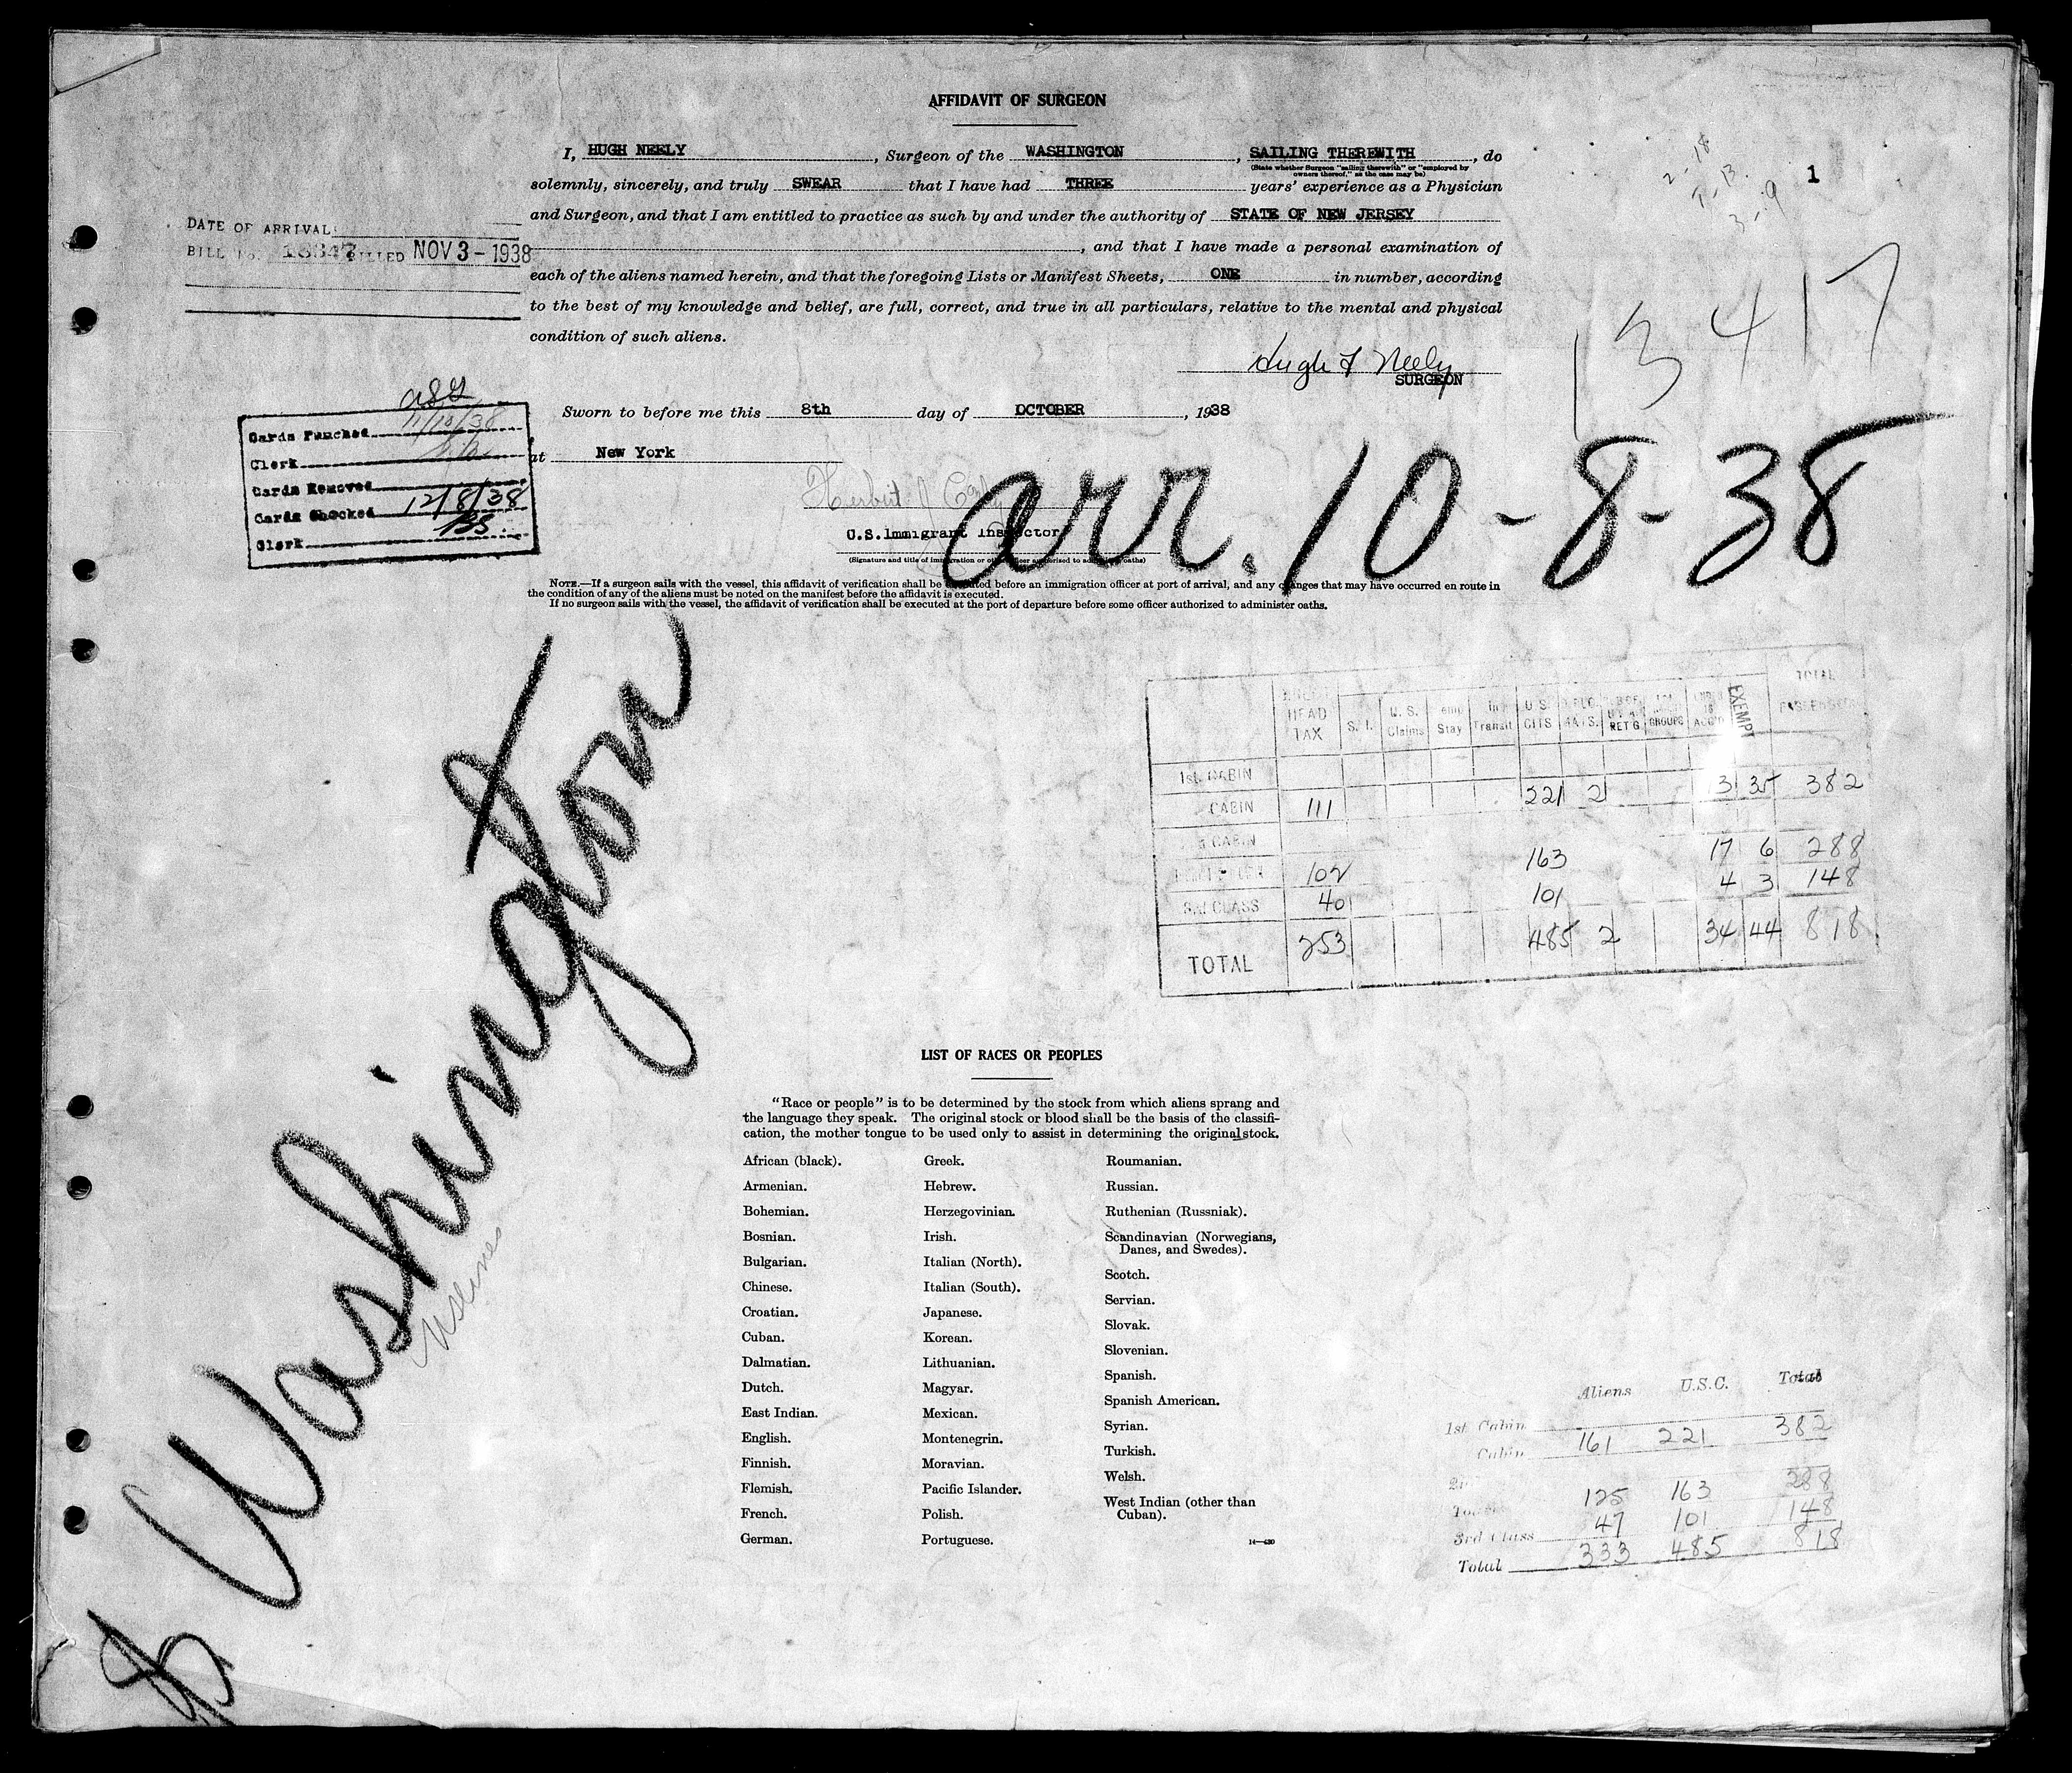 AFFIDAVIT OF SURGEON
I, HUGH NEELY, Surgeon of the WASHINGTON, SAILING THEREWITH, do
(State whether Surgeon "sailing therewith" or "employed by
owners thereof," as the case may be)
solemnly, sincerely, and truly SWEAR that I have had THREE years' experience as a Physician
and Surgeon, and that I am entitled to practice as such by and under the authority of STATE OF NEW JERSEY
, and that I have made a personal examination of
each of the aliens named herein, and that the foregoing Lists or Manifest Sheets, ONE in number, according
to the best of my knowledge and belief, are full, correct, and true in all particulars, relative to the mental and physical
condition of such aliens.
1
2-18
T-13
3-9
13417
DATE OF ARRIVAL
BILL No. BILLED NOV 3 - 1938
Hugh F Neely
SURGEON
Sworn to before me this 8th day of OCTOBER, 1938
at New York
Herbert
U.S. Immigrant Inspector
(Signature and title of immigration or other officer authorised to administer oaths)
arr. 10-8-38
Cards Punched 11/10/38
Clerk
Cards Removed
Cards Checked 12/8/38
Clerk BS
NOTE.—If a surgeon sails with the vessel, this affidavit of verification shall be executed before an immigration officer at port of arrival, and any changes that may have occurred en route in
the condition of any of the aliens must be noted on the manifest before the affidavit is executed.
If no surgeon sails with the vessel, the affidavit of verification shall be executed at the port of departure before some officer authorized to administer oaths.
Washington
US Lines
HEAD TAX S. I. U.S. Claims Temp Stay In Transit U.S. CITS RET'G GROUPS EXEMPT TOTAL PASSENGERS
1st CABIN
CABIN 111 221 2 13 35 382
CABIN
102 163 17 6 288
3rd CLASS 40 101 4 3 148
TOTAL 253 485 2 34 44 818
LIST OF RACES OR PEOPLES
"Race or people" is to be determined by the stock from which aliens sprang and
the language they speak. The original stock or blood shall be the basis of the classifi-
cation, the mother tongue to be used only to assist in determining the original stock.
African (black).
Armenian.
Bohemian.
Bosnian.
Bulgarian.
Chinese.
Croatian.
Cuban.
Dalmatian.
Dutch.
East Indian.
English.
Finnish.
Flemish.
French.
German.
Greek.
Hebrew.
Herzegovinian.
Irish.
Italian (North).
Italian (South).
Japanese.
Korean.
Lithuanian.
Magyar.
Mexican.
Montenegrin.
Moravian.
Pacific Islander.
Polish.
Portuguese.
Roumanian.
Russian.
Ruthenian (Russniak).
Scandinavian (Norwegians,
Danes, and Swedes).
Scotch.
Servian.
Slovak.
Slovenian.
Spanish.
Spanish American.
Syrian.
Turkish.
Welsh.
West Indian (other than
Cuban).
Aliens U.S.C. Total
1st Cabin
Cabin 161 221 382
125 163 288
3rd Class 47 101 148
Total 333 485 818